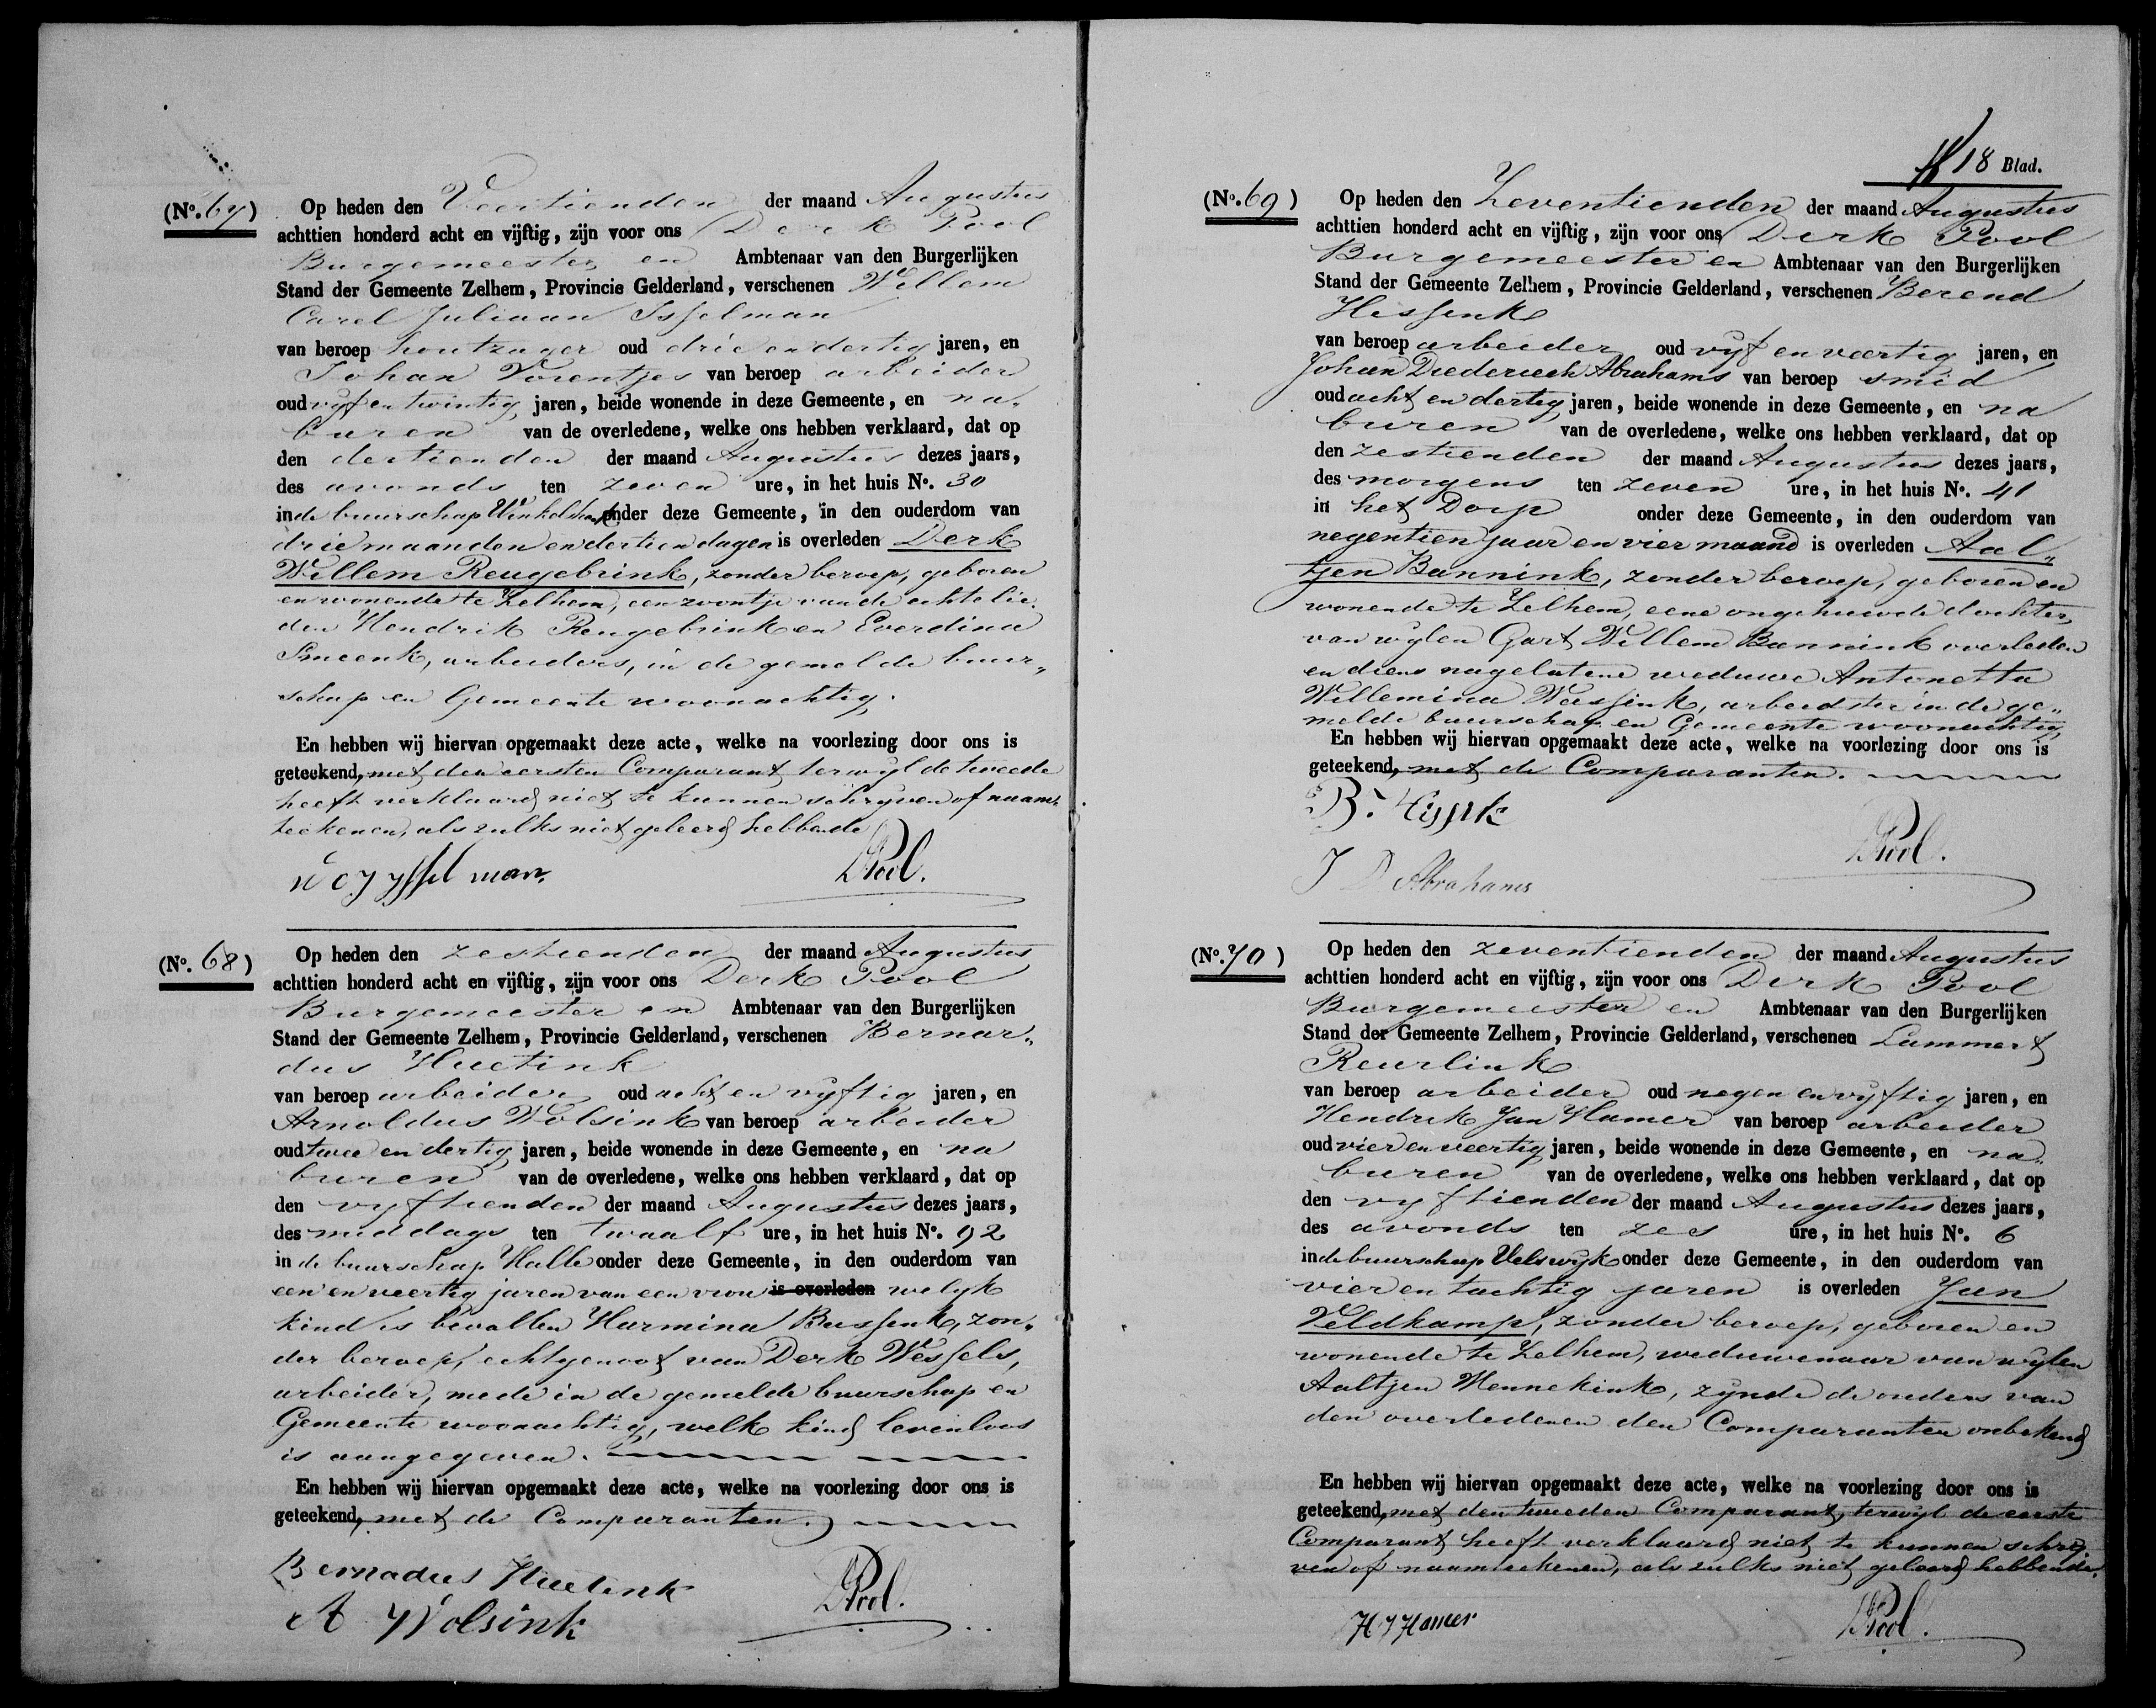 (No. 67) Op heden den Veertienden der maand Augustus
achttien honderd acht en vijftig, zijn voor ons Derk Pool
Burgemeester en Ambtenaar van den Burgerlijken
Stand der Gemeente Zelhem, Provincie Gelderland, verschenen Willem
Carel Juliaan Isselman
van beroep houtzager oud drie en dertig jaren, en
Johan Vorentjes van beroep arbeider
oud vyf en twintig jaren, beide wonende in deze Gemeente, en na„
buren van de overledene, welke ons hebben verklaard, dat op
den dertienden der maand Augustus dezes jaars,
des avonds ten zeven ure, in het huis No. 30
in de buurschap Winkelshoek onder deze Gemeente, in den ouderdom van
drie maanden en dertien dagen is overleden Derk
Willem Reugebrink, zonder beroep, geboren
en wonende te Zelhem, een zoontje van de echtelie„
den Hendrik Reugebrink en Everdina
Smeenk, arbeiders, in de gemelde buur„
schap en Gemeente woonachtig.
En hebben wij hiervan opgemaakt deze acte, welke na voorlezing door ons is
geteekend, met den eersten Comparant terwyl de tweede
heeft verklaard niet te kunnen schryven of naam„
teekenen, als zulks niet geleerd hebbende
W C J Ysselman. DPool.
(No. 68) Op heden den zestienden der maand Augustus
achttien honderd acht en vijftig, zijn voor ons Derk Pool
Burgemeester en Ambtenaar van den Burgerlijken
Stand der Gemeente Zelhem, Provincie Gelderland, verschenen Bernar„
dus Huetink
van beroep arbeider oud acht en vyftig jaren, en
Arnoldus Wolsink van beroep arbeider
oud twee en dertig jaren, beide wonende in deze Gemeente, en na
buren van de overledene, welke ons hebben verklaard, dat op
den vyftienden der maand Augustus dezes jaars,
des middags ten twaalf ure, in het huis No. 92
in de buurschap Halle onder deze Gemeente, in den ouderdom van
een en veertig jaren van een vrou is overleden welyk
kind is bevallen Harmina Bussink, zon„
der beroep, echtgenoot van Derk Wessels,
arbeider, mede in de gemelde buurschap en
Gemeente woonachtig, welk kind levenloos
is aangegeven.
En hebben wij hiervan opgemaakt deze acte, welke na voorlezing door ons is
geteekend, met de Comparanten.
Bernadus Huetink
A. Wolsink DPool.
18 Blad.
(No. 69) Op heden den Zeventienden der maand Augustus
achttien honderd acht en vijftig, zijn voor ons Derk Pool
Burgemeester en Ambtenaar van den Burgerlijken
Stand der Gemeente Zelhem, Provincie Gelderland, verschenen Berend
Hessink
van beroep arbeider oud vyf en veertig jaren, en
Johan Diederich Abrahams van beroep smid
oud acht en dertig jaren, beide wonende in deze Gemeente, en na
buren van de overledene, welke ons hebben verklaard, dat op
den zestienden der maand Augustus dezes jaars,
des morgens ten zeven ure, in het huis No. 41
in het Dorp onder deze Gemeente, in den ouderdom van
negentien jaar en vier maand is overleden Aal„
tjen Bannink, zonder beroep, geboren en
wonende te Zelhem, eene ongehuwde dochter
van wylen Gart Willem Bannink overleden
en diens nagelatene weduwe Antonetta
Willemina Wessink, arbeidster in de ge„
melde buurschap en Gemeente woonachtig
En hebben wij hiervan opgemaakt deze acte, welke na voorlezing door ons is
geteekend, met de Comparanten.
B. Hessink
J D Abrahams DPool.
(No. 70) Op heden den zeventienden der maand Augustus
achttien honderd acht en vijftig, zijn voor ons Derk Pool
Burgemeester en Ambtenaar van den Burgerlijken
Stand der Gemeente Zelhem, Provincie Gelderland, verschenen Lammert
Reurlink
van beroep arbeider oud negen en vyftig jaren, en
Hendrik Jan Hamer van beroep arbeider
oud vier en veertig jaren, beide wonende in deze Gemeente, en na„
buren van de overledene, welke ons hebben verklaard, dat op
den vyftienden der maand Augustus dezes jaars,
des avonds ten zes ure, in het huis No. 6
in de buurschap Velswyk onder deze Gemeente, in den ouderdom van
vier en tachtig jaren is overleden Jan
Veldkamp, zonder beroep, geboren en
wonende te Zelhem, weduwenaar van wylen
Aaltjen Mennekink, zynde de ouders van
den overledenen den Comparanten onbekend
En hebben wij hiervan opgemaakt deze acte, welke na voorlezing door ons is
geteekend, met den tweeden Comparant, terwyl de eerste
Comparant heeft verklaard niet te kunnen schry
ven of naamteekenen, als zulks niet geleerd hebbende.
H J Hamer DPool.